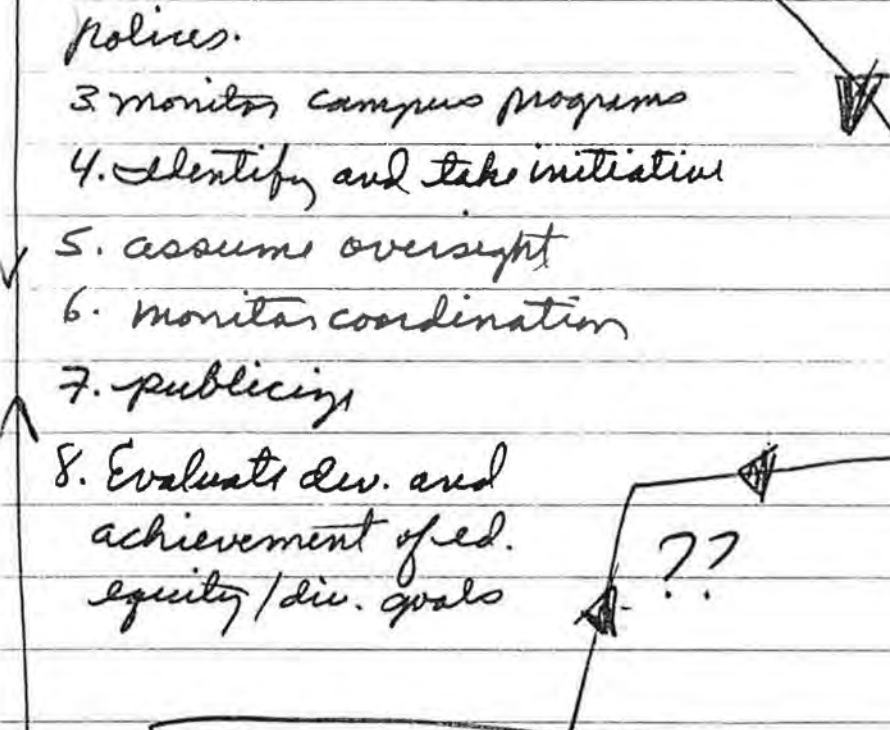 polices.
3. monitor campus programs
4. Identify and take initiative
5. assume oversight
6. monitor coordination
7. publicize
8. Evaluate dev. and
achievement of ed.
equity / div. goals
??